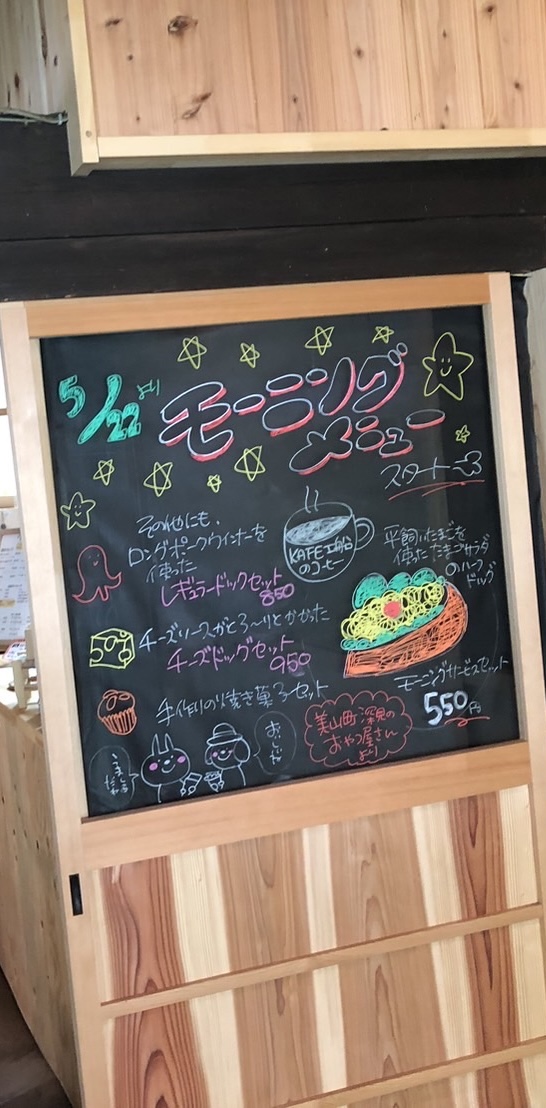 5/22より
モーニング
メニュー
スタート
その他にも、
ロングポークウインナーを
使った
レギュラードックセット
850
KAFE工船
のコーヒー
平飼いたまごを
使ったたまごサラダ
のハーフ
ドッグ
チーズソースがとろ〜りとかかった
チーズドッグセット
950
モーニングサービスセット
550円
手作りの焼き菓子セット
美山町深見の
おやつ屋さん
より